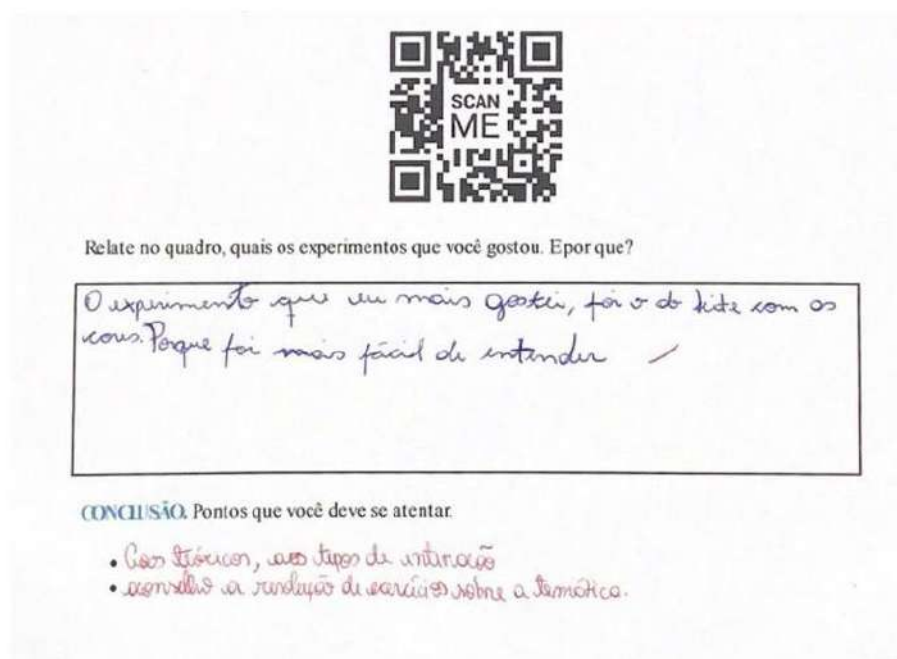 SCAN
ME
Relate no quadro, quais os experimentos que você gostou. Epor que?
O experimento que eu mais gostei, foi o do leite com as
cores. Porque foi mais fácil de entender
CONCLUSÃO. Pontos que você deve se atentar.
• teóricos, aos tipos de interação
• aconselho a resolução de exercícios sobre a temática.